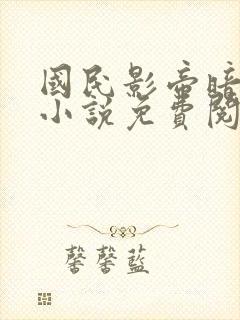 國民影帝暗
小說免費閱
馨馨藍